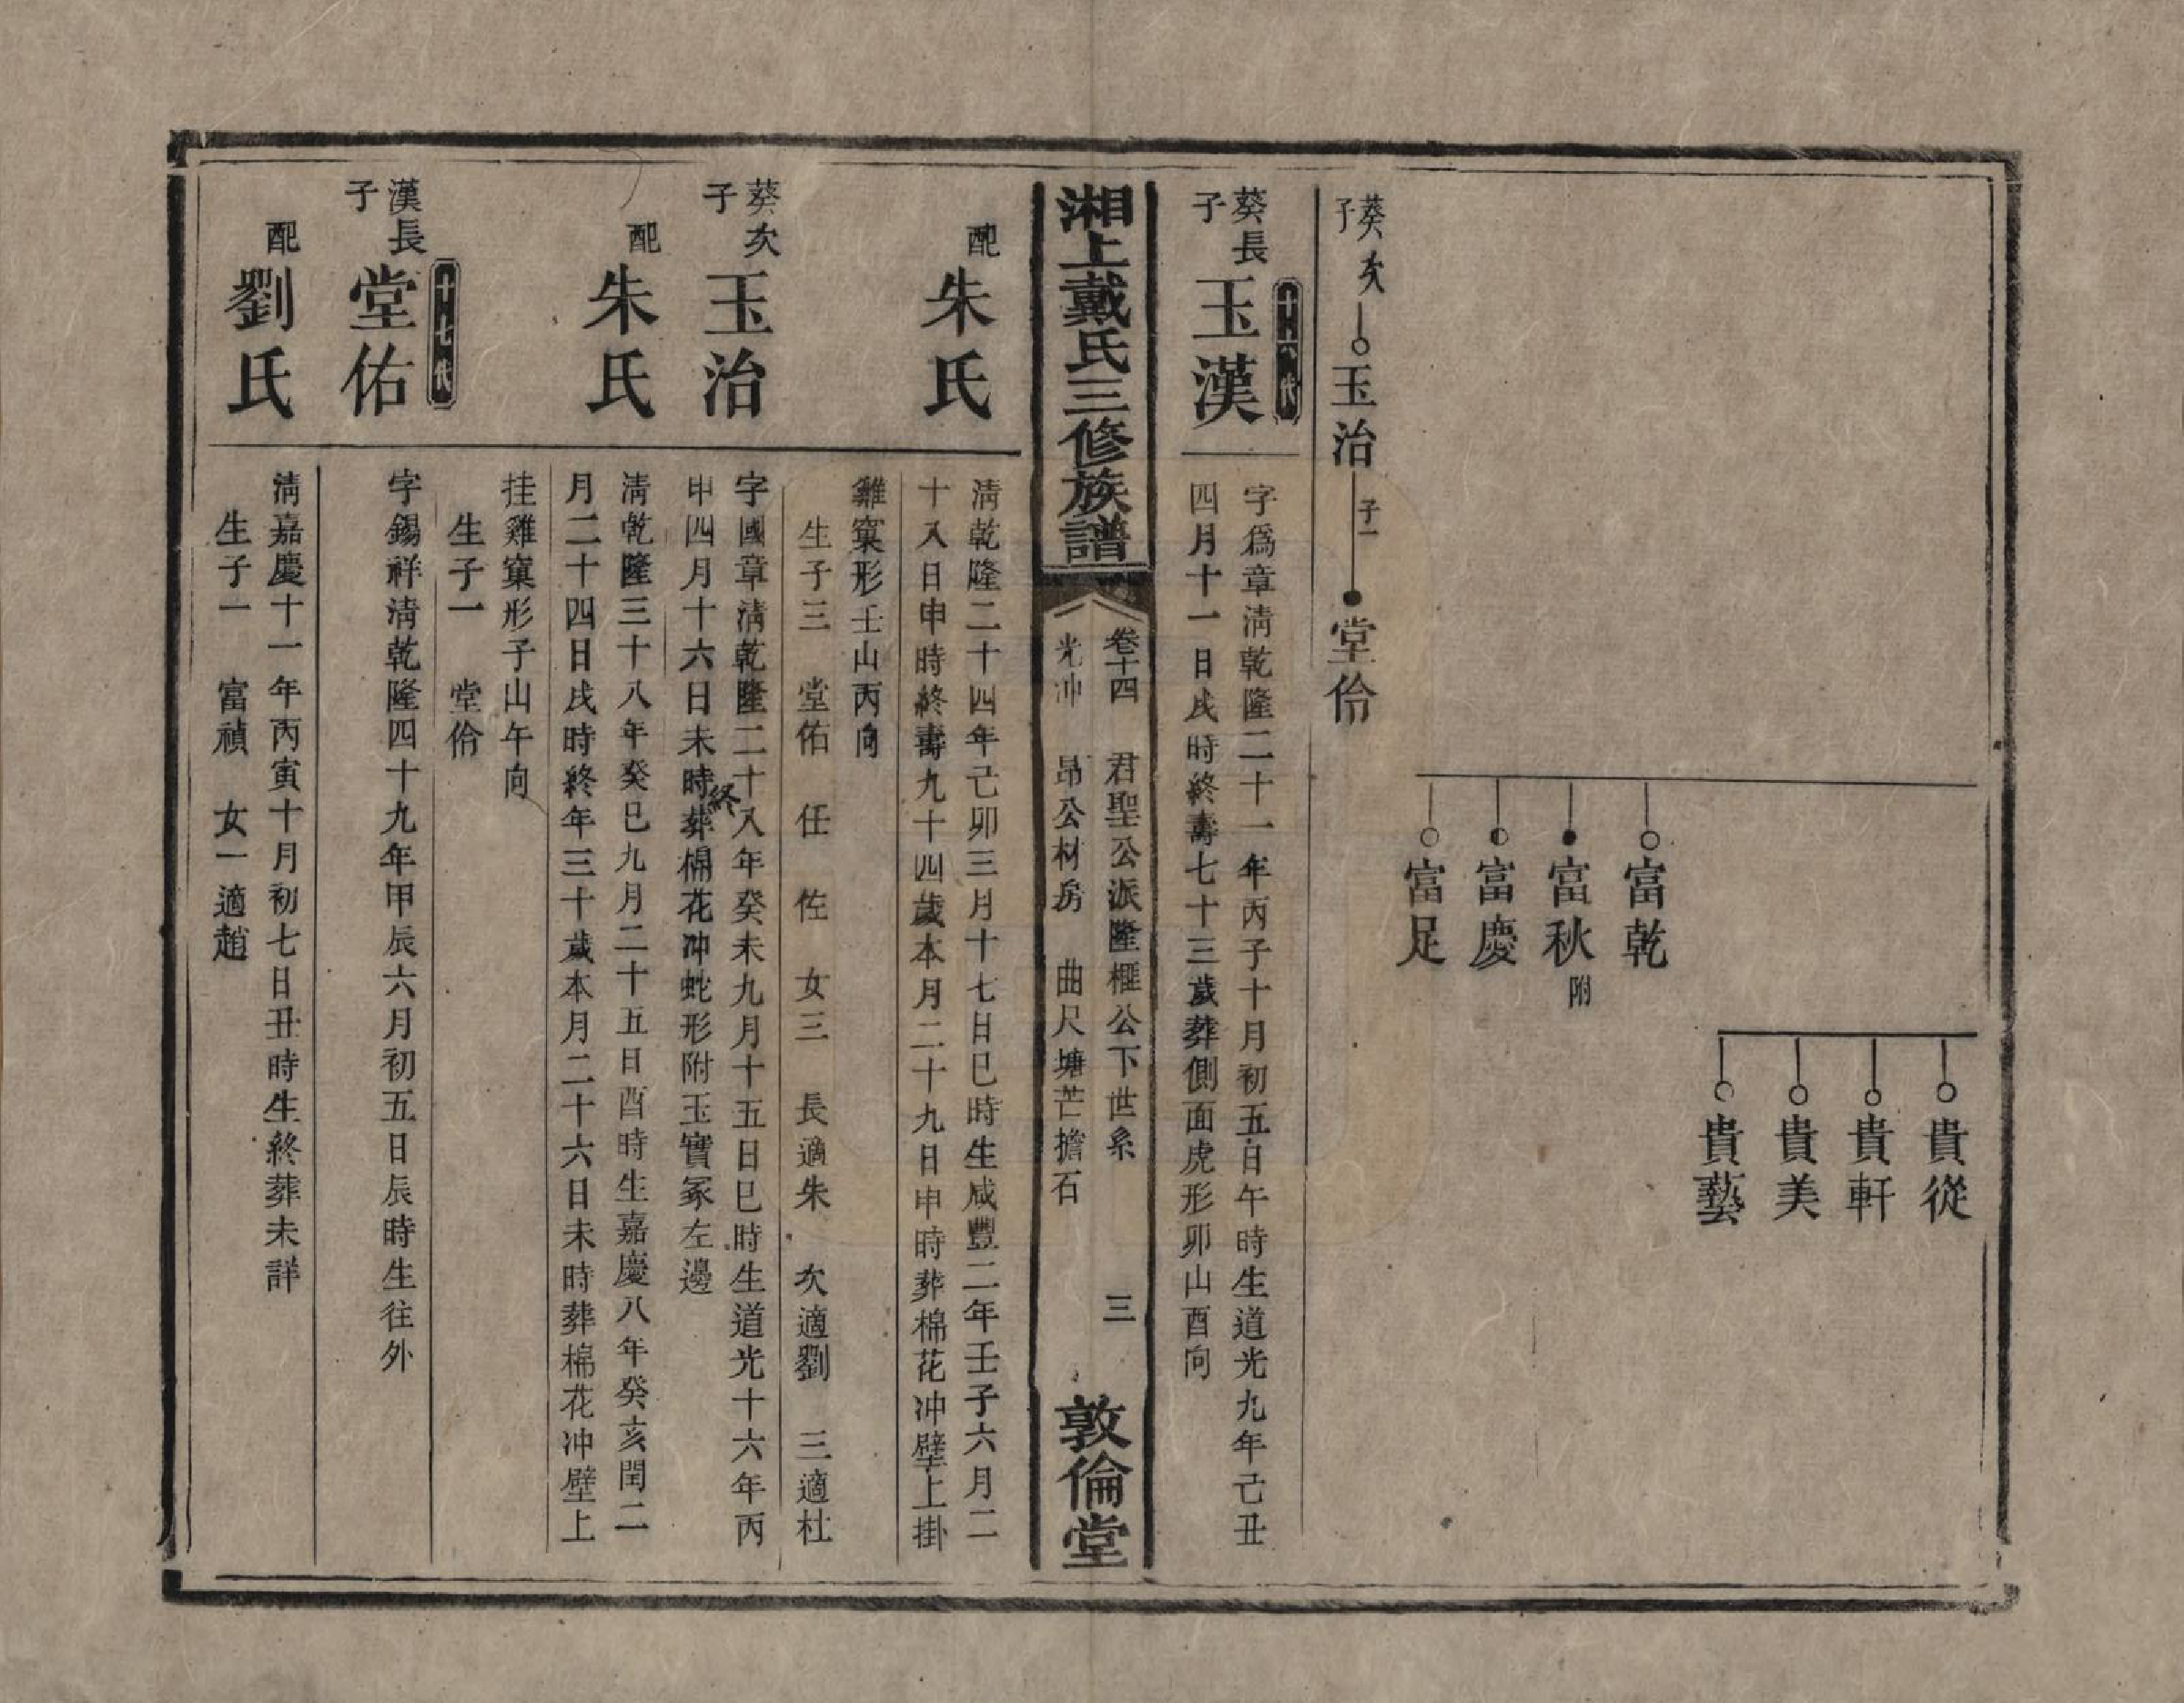 貴從
貴軒
貴美
貴藝
富乾
富秋附
富慶
富足
葵次子
玉治
子一
堂伶
十六代
葵長子
玉漢
字爲章淸乾隆二十一年丙子十月初五日午時生道光九年己丑
四月十一日戌時終壽七十三歲葬側面虎形卯山酉向
湘上戴氏三修族譜
卷十四 君聖公派隆榧公下世系 三
光冲 昂公材房 曲尺塘芒擔石
敦倫堂
配
朱氏
淸乾隆二十四年己卯三月十七日巳時生咸豐二年壬子六月二
十八日申時終壽九十四歲本月二十九日申時葬棉花冲壁上掛
雞窠形壬山丙向
生子三 堂佑 任 佐 女三 長適朱 次適劉 三適杜
葵次子
玉治
字國章淸乾隆二十八年癸未九月十五日巳時生道光十六年丙
申四月十六日未時終葬棉花冲蛇形附玉實冢左邊
配
朱氏
淸乾隆三十八年癸巳九月二十五日酉時生嘉慶八年癸亥閏二
月二十四日戌時終年三十歲本月二十六日未時葬棉花冲壁上
挂雞窠形子山午向
生子一 堂伶
十七代
漢長子
堂佑
字錫祥淸乾隆四十九年甲辰六月初五日辰時生往外
配
劉氏
淸嘉慶十一年丙寅十月初七日丑時生終葬未詳
生子一 富禎 女一適趙